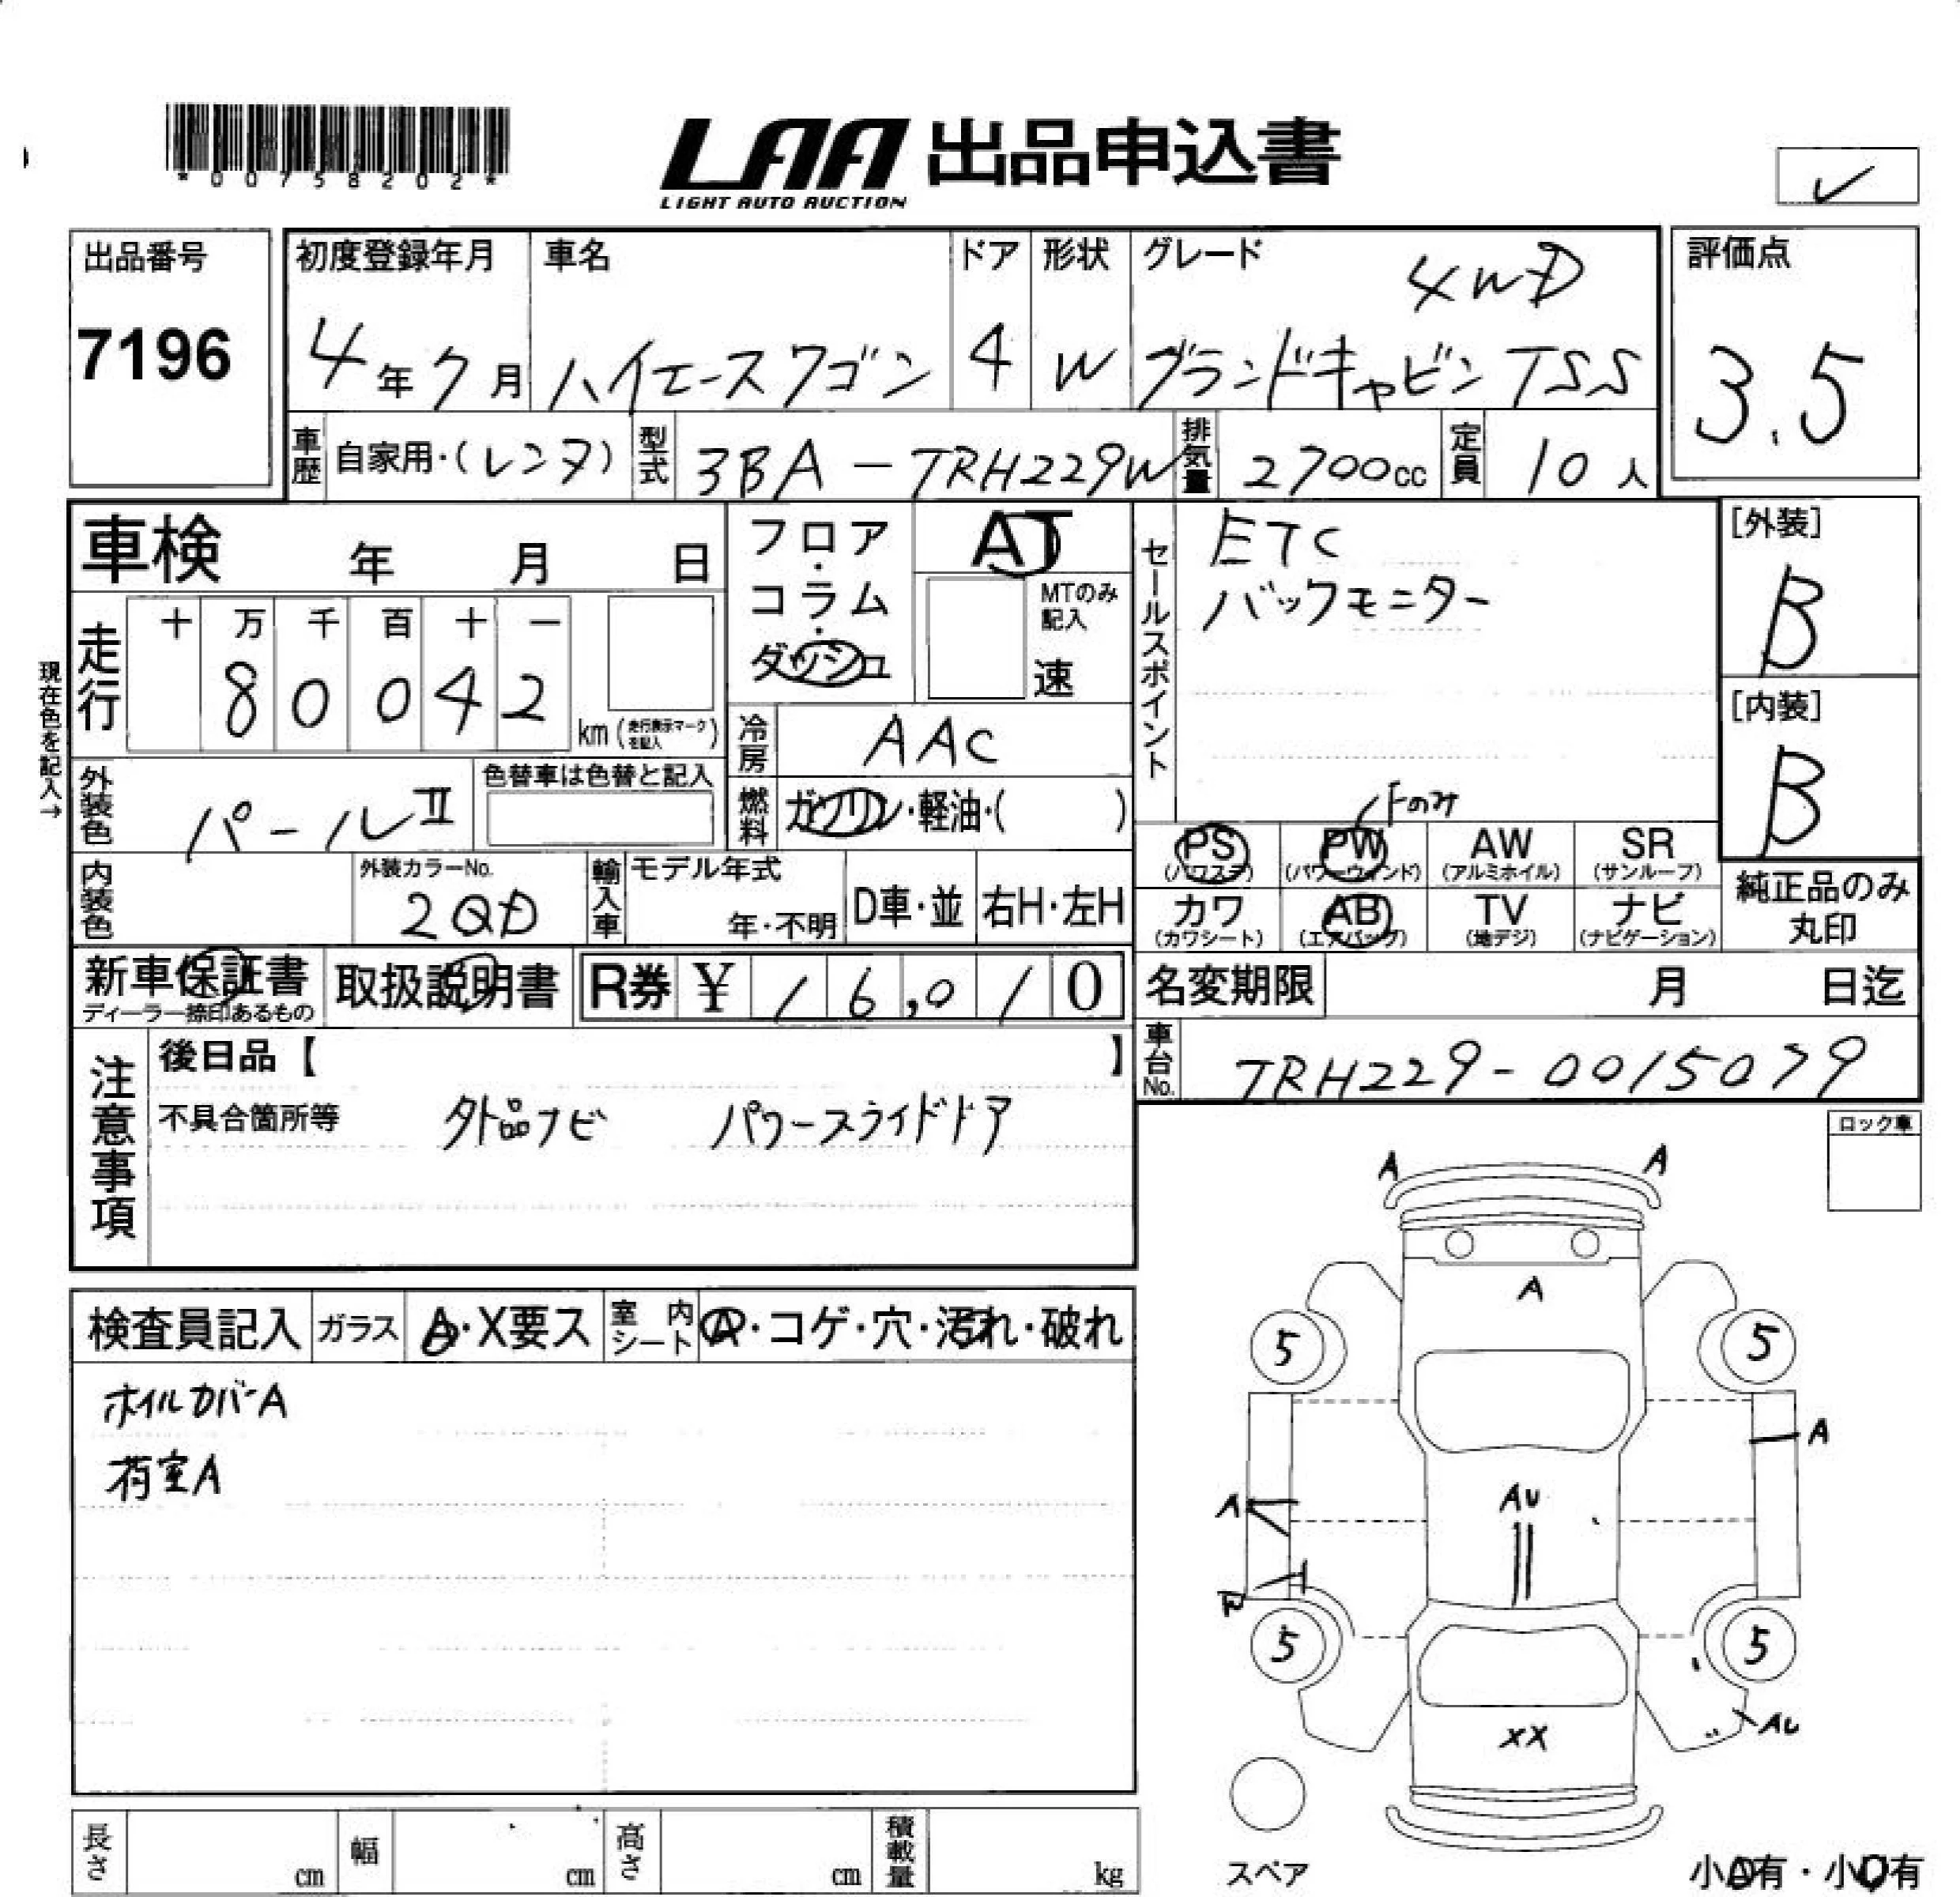 *00758202*
LAA 出品申込書
LIGHT AUTO AUCTION
出品番号
7196
初度登録年月
4年7月
車名
ハイエースワゴン
ドア
4
形状
W
グレード
4WD
グランドキャビン TSS
評価点
3.5
車歴
自家用・(レンタ)
型式
3BA-TRH229W
排気量
2700cc
定員
10人
車検 年 月 日
フロア・コラム・ダッシュ
AT
MTのみ記入
速
走行
十 万 千 百 十 一
8 0 0 4 2
km(走行表示マークを記入)
現在色を記入→
外装色
パールⅡ
色替車は色替と記入
冷房
AAC
燃料
ガソリン・軽油・( )
内装色
外装カラーNo.
2QD
輸入車
モデル年式
年・不明
D車・並
右H・左H
セールスポイント
ETC
バックモニター
Fのみ
PS
(パワステ)
PW
(パワーウィンド)
AW
(アルミホイル)
SR
(サンルーフ)
カワ
(カワシート)
AB
(エアバッグ)
TV
(地デジ)
ナビ
(ナビゲーション)
[外装]
B
[内装]
B
純正品のみ
丸印
新車保証書
ディーラー捺印あるもの
取扱説明書
R券 ¥ 16,010
名変期限 月 日迄
車台No.
TRH229-0015079
注意事項
後日品【 】
不具合箇所等
外品ナビ パワースライドドア
ロック車
検査員記入
ガラス
A・X要ス
室内シート
A・コゲ・穴・汚れ・破れ
ホイルカバーA
荷室A
A A
A
5 5
A
AU
A
5 5
AU
XX
スペア
小A有・小U有
長さ cm
幅 cm
高さ cm
積載量 kg